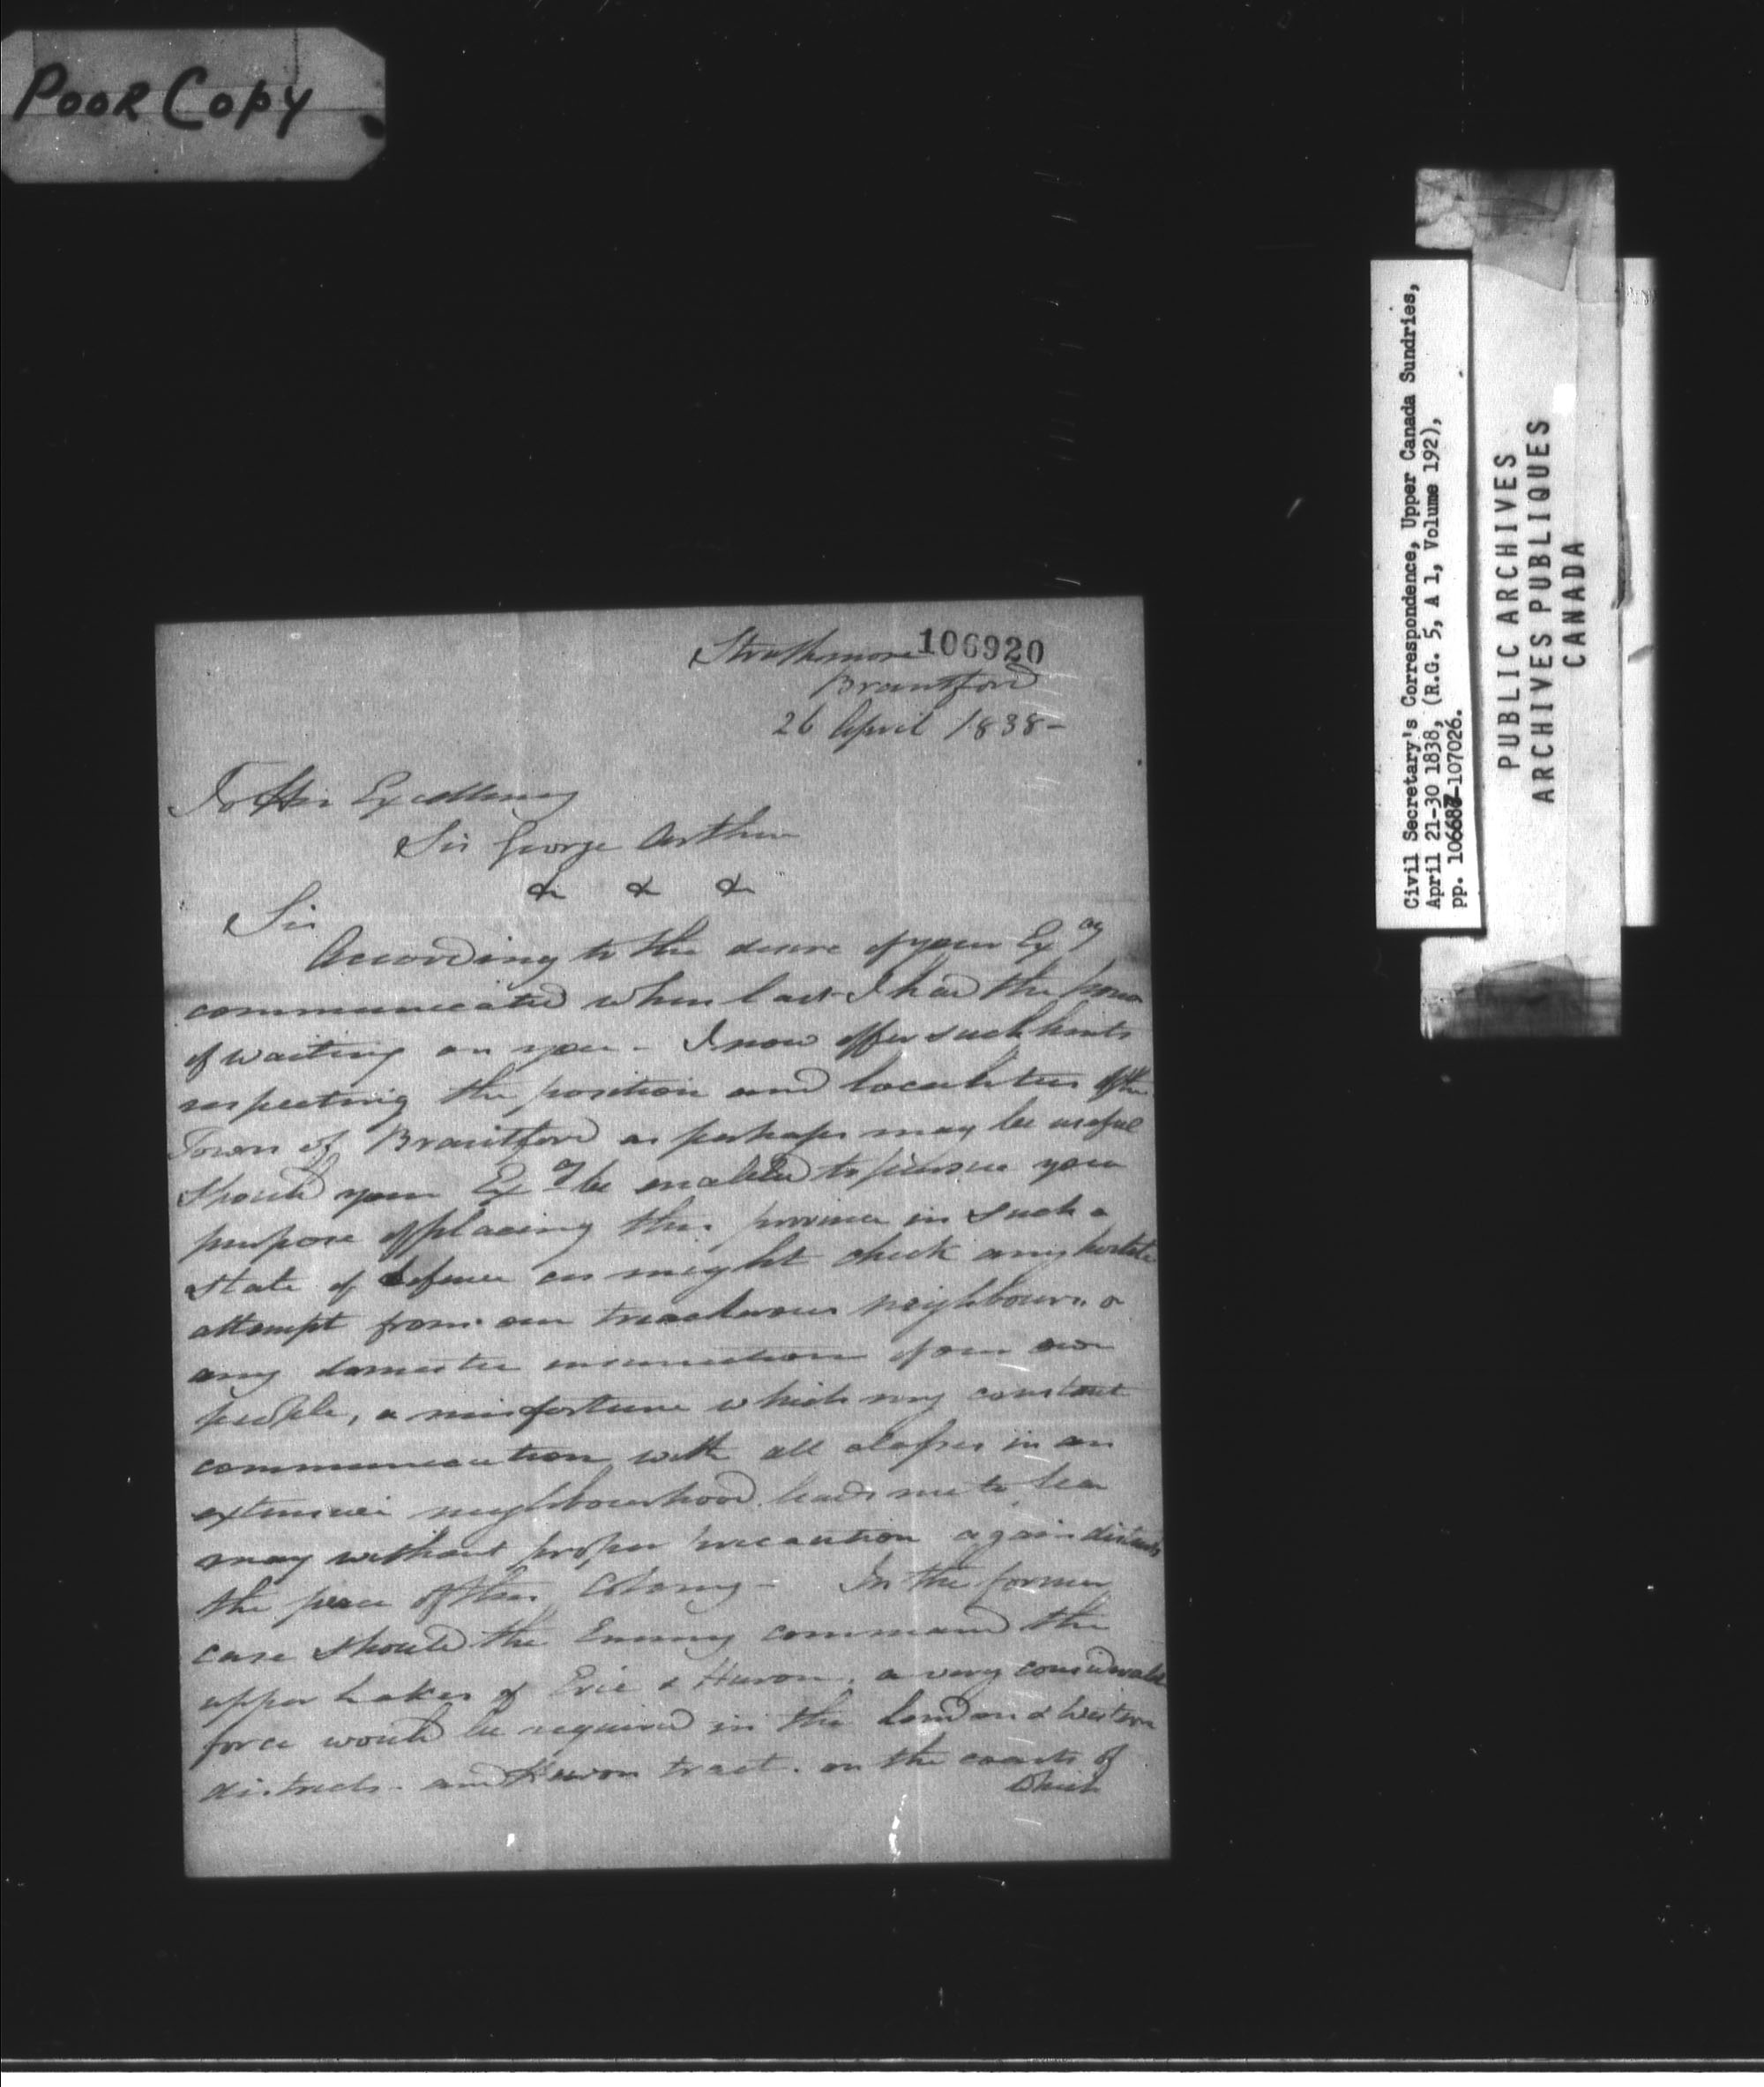 POOR COPY
106920
Strathmore
Brantford
26 April 1838-
To His Excellency
Sir George Arthur
& & &
Sir
According to the desire of your Excy
communicated when last I had the honor
of waiting on you - I now offer such hints
respecting the position and localities of the
Town of Brantford as perhaps may be useful
should your Excy be enabled to pursue your
purpose of placing this province in such a
state of defence as might check any hostile
attempt from our treacherous neighbours or
any domestic insurrection of our own
people, a misfortune which my constant
communication with all classes in an
extensive neighbourhood leads me to fear
may without proper precaution again disturb
the peace of this Colony - In the former
case should the Enemy command the
upper Lakes of Erie & Huron, a very considerable
force would be required in the London & Western
districts - and Huron tract. on the coasts of
which
Civil Secretary's Correspondence, Upper Canada Sundries,
April 21-30 1838, (R.G. 5, A 1, Volume 192),
pp. 106687-107026.
PUBLIC ARCHIVES
ARCHIVES PUBLIQUES
CANADA